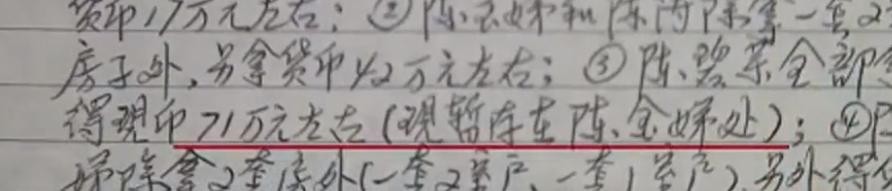 货币17万元左右；②陈云娣和陈 除拿一套2
房子外，另拿货币42万元左右；③陈碧 全部
得现币71万元左右（现暂存在陈金娣处）；④
娣除拿2套房外（一套2室户、一套1室户）另外得